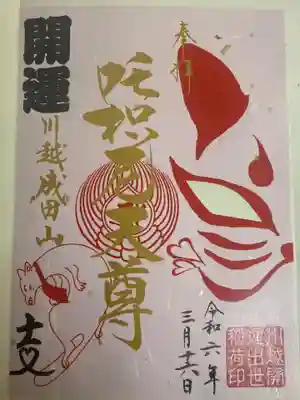 奉拝
開運
吒枳尼天尊
川越成田山
十二支
令和六年
三月十六日
川越開
運出世
稲荷印